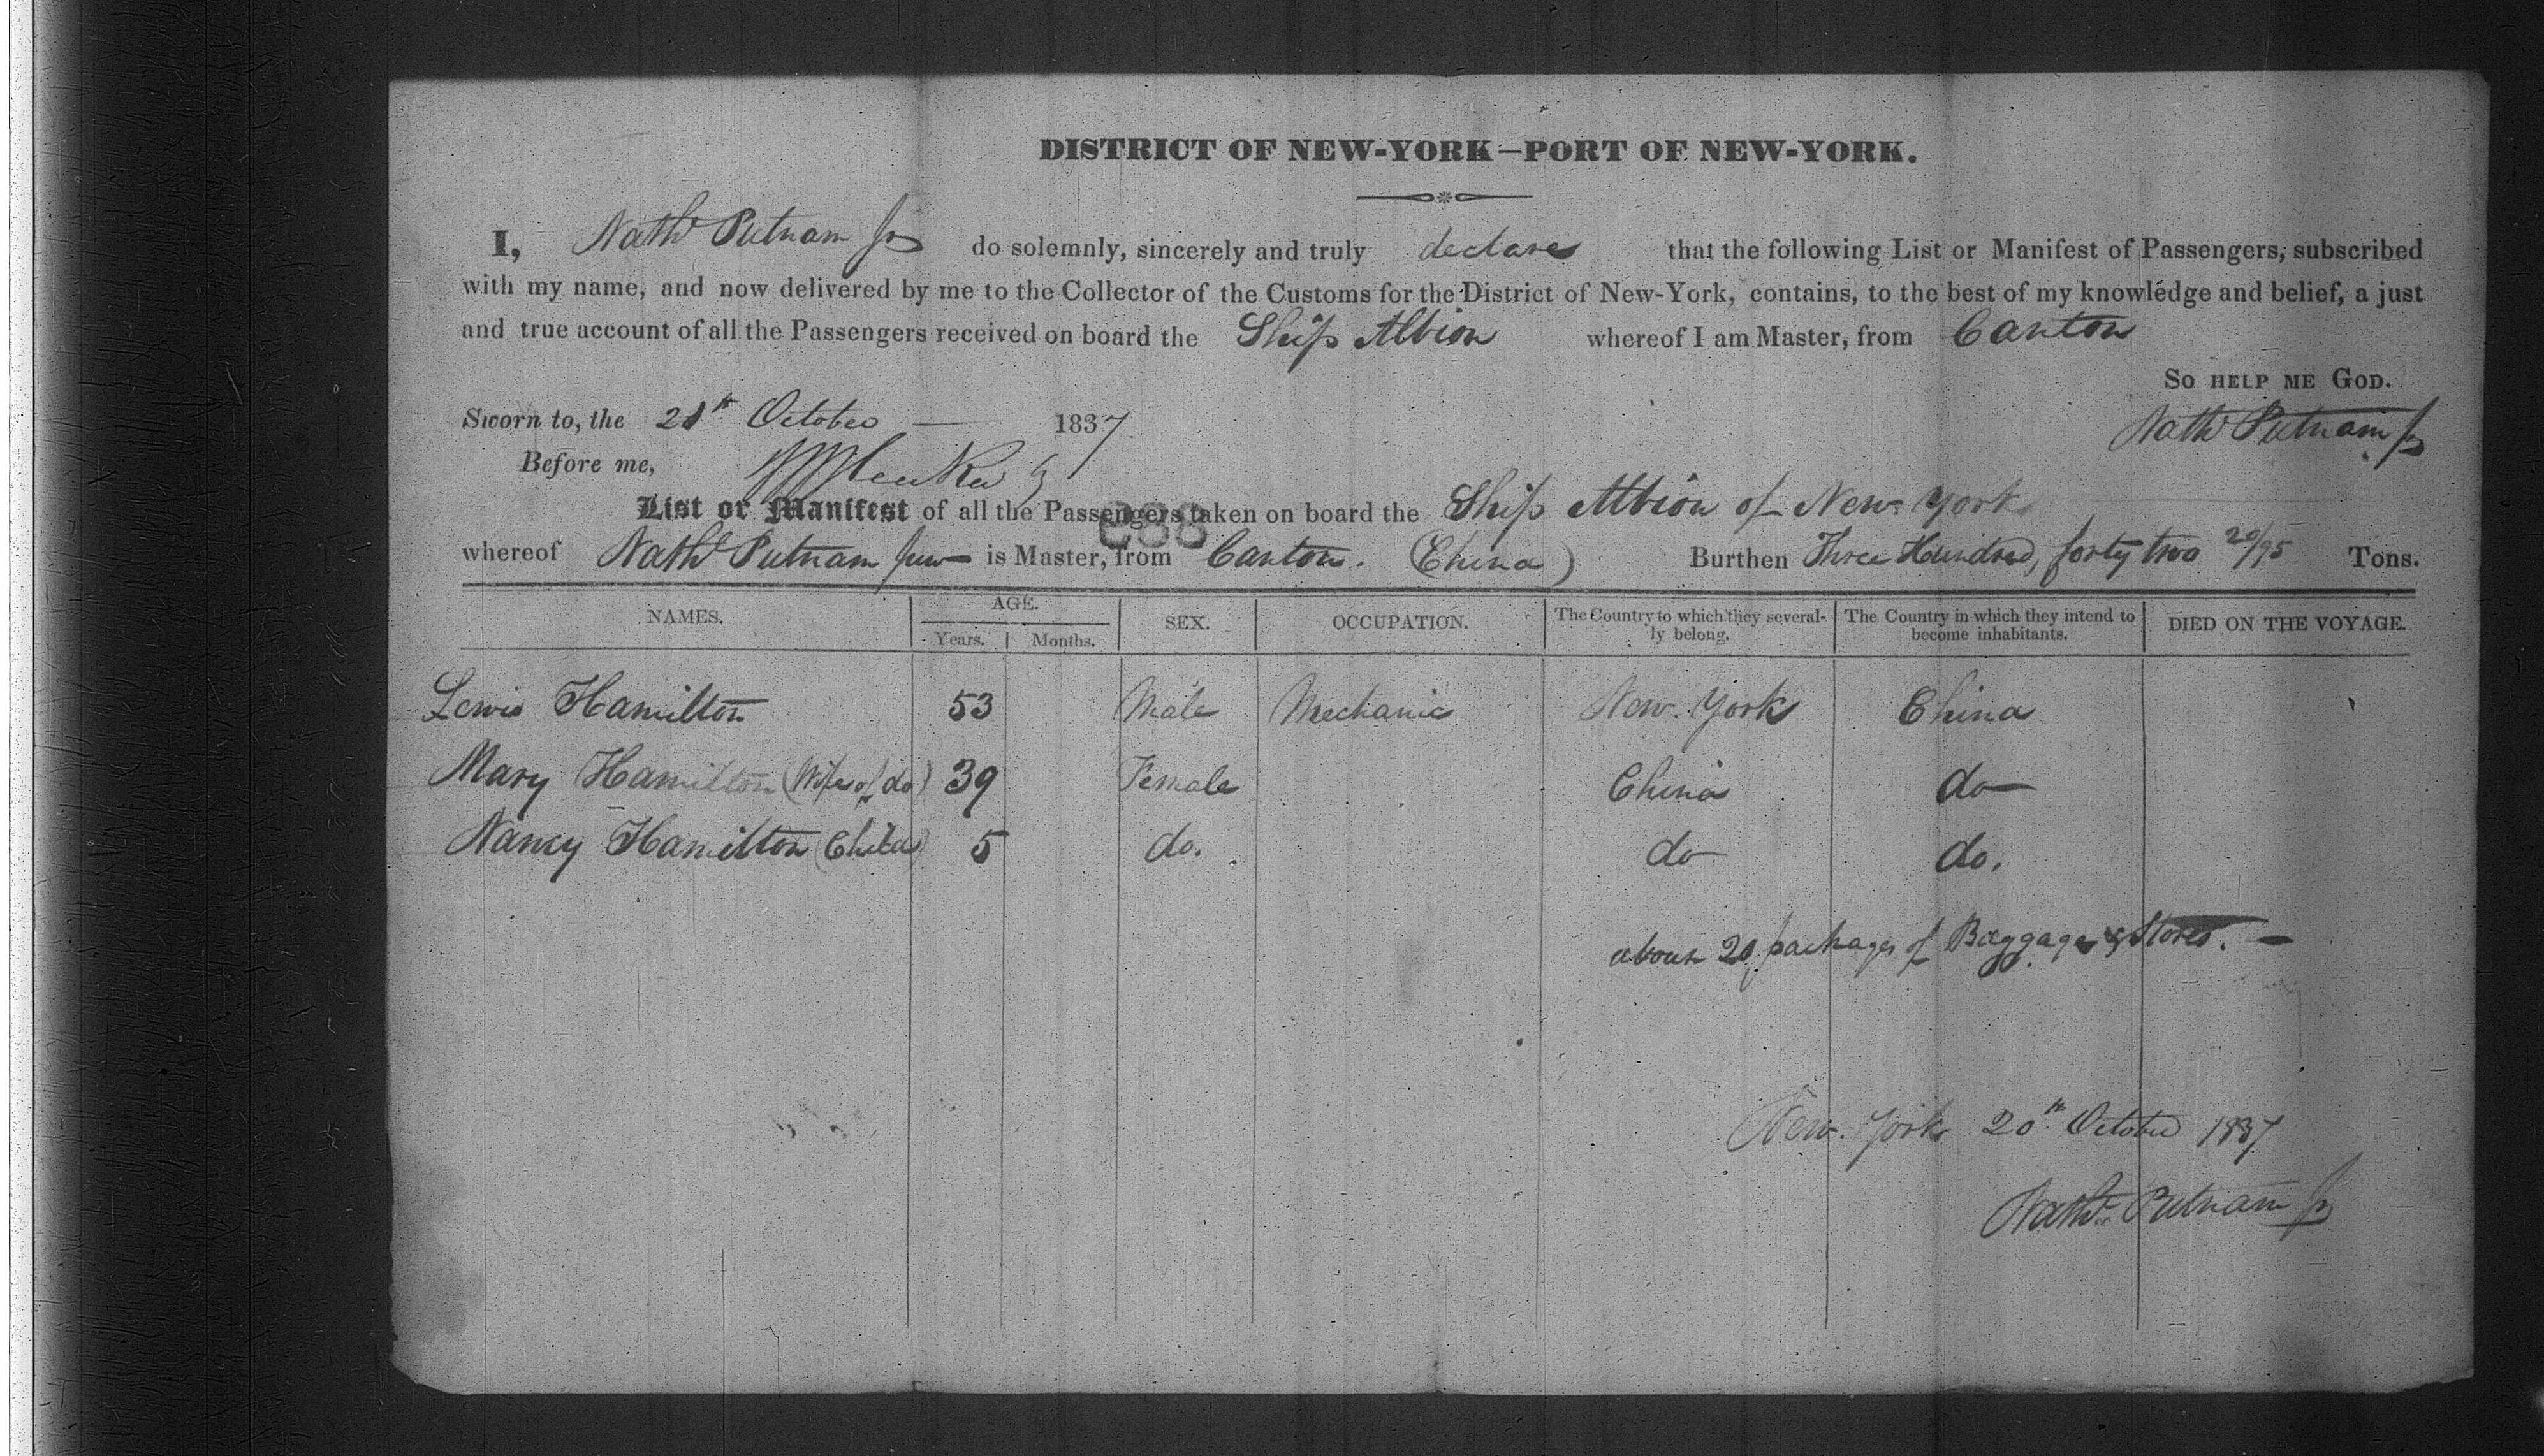 DISTRICT OF NEW-YORK—PORT OF NEW-YORK.
I, Nathl Putnam Jr do solemnly, sincerely and truly declare that the following List or Manifest of Passengers, subscribed
with my name, and now delivered by me to the Collector of the Customs for the District of New-York, contains, to the best of my knowledge and belief, a just
and true account of all the Passengers received on board the Ship Albion whereof I am Master, from Canton
SO HELP ME GOD.
Sworn to, the October — 1837
Nathl Putnam Jr
Before me,
List or Manifest of all the Passengers taken on board the Ship Albion of New-York
whereof Nathl Putnam Jun is Master, from Canton. (China) Burthen Three Hundred, forty two 20/95 Tons.
NAMES. AGE. SEX. OCCUPATION. The Country to which they several- The Country in which they intend to DIED ON THE VOYAGE.
Years. Months. ly belong. become inhabitants.
Lewis Hamilton 53 Male Mechanic New-York China
Mary Hamilton (Wife of do) 39 Female China do
Nancy Hamilton (Child) 5 do. do do.
about 20 packages of Baggage & Stores. —
New-York 20th October 1837
Nathl Putnam Jr